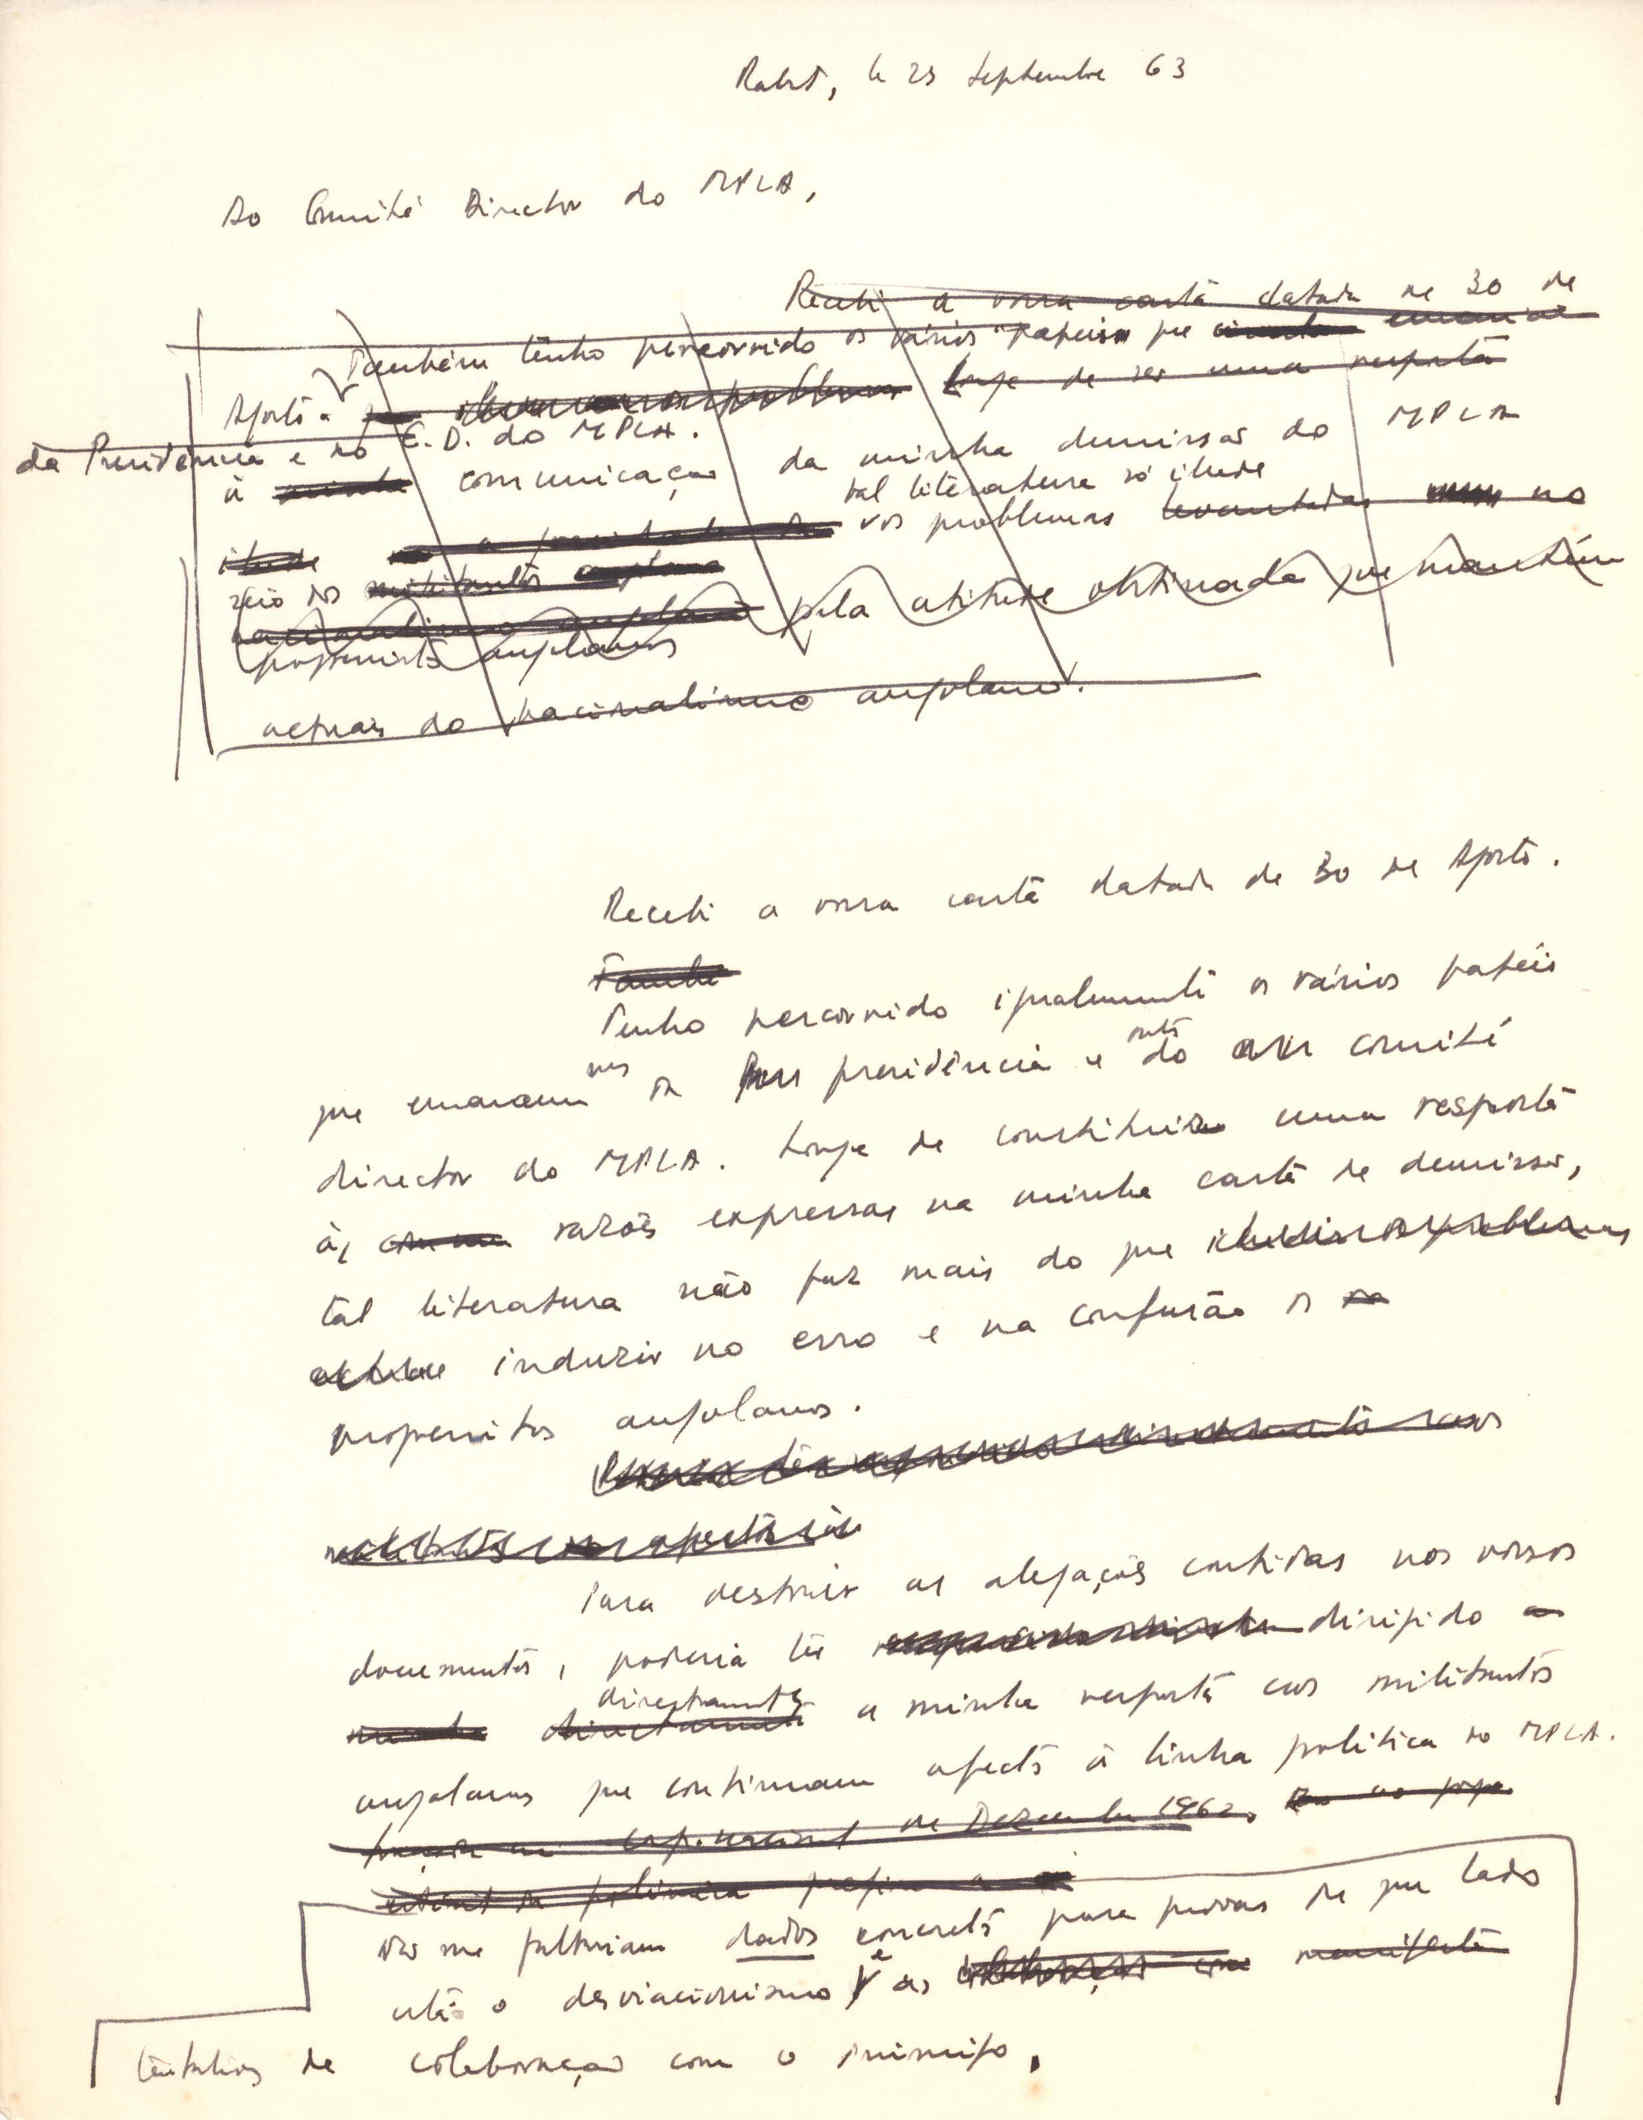 Rabat, le 23 Septembre 63
Ao Comité Director do MPLA,
Recebi a vossa carta datada de 30 de
Também tenho percorrido os vários papeis que
Agosto. longe de ser uma resposta
da Presidência e do C.D. do MPLA.
à minha comunicação da minha demissão do MPLA
tal literatura só ilude
ilude os problemas levantados no
seio dos militantes
pela atitude obstinada que mantém
progressista angolanos
actuais do nacionalismo angolano.
Recebi a vossa carta datada de 30 de Agosto.
També
Tenho percorrido igualmente os vários papéis
que emanam da presidência e do comité
director do MPLA. Longe de constituir uma resposta
às razões expressas na minha carta de demissão,
tal literatura não faz mais do que iludir os problemas
induzir no erro e na confusão os
progressistas angolanos.
Para destruir as alegações contidas nos vossos
documentos, poderia ter dirigido
directamente
directamente a minha resposta aos militantes
angolanos que continuam afectos à linha política do MPLA.
de Dezembro 1962.
Não me faltariam dados concretos para provar de que lado
está o desviacionismo e as manifesta
tentativas de colaboração com o inimigo.